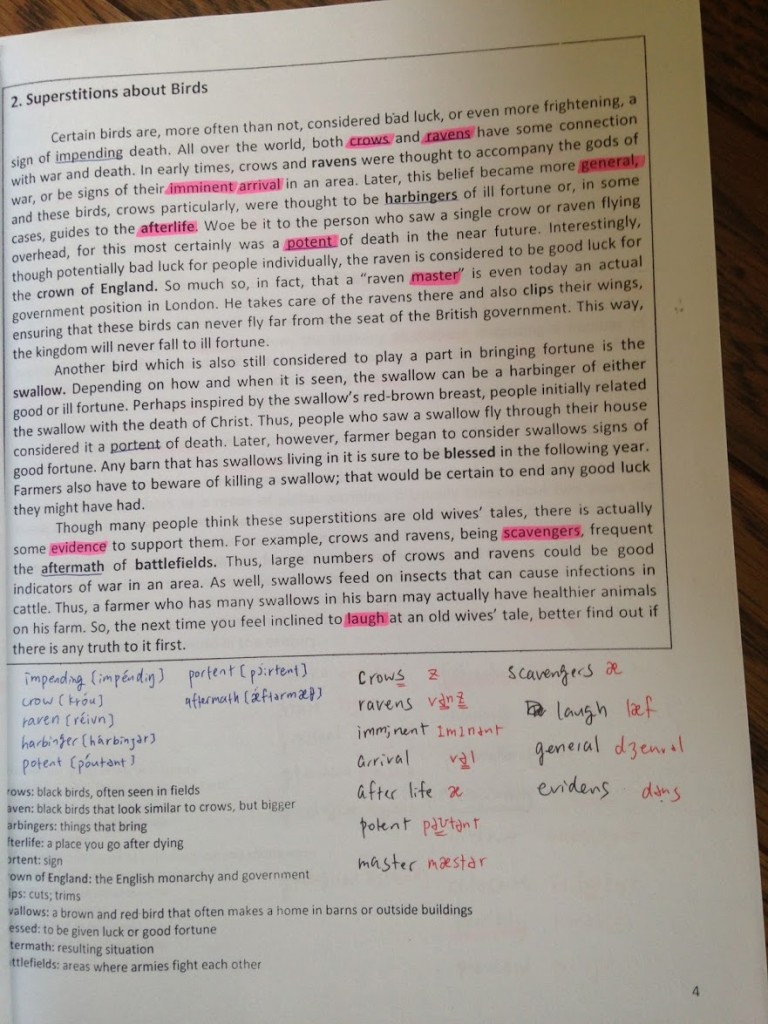 2. Superstitions about Birds
Certain birds are, more often than not, considered bad luck, or even more frightening, a
sign of impending death. All over the world, both crows and ravens have some connection
with war and death. In early times, crows and ravens were thought to accompany the gods of
war, or be signs of their imminent arrival in an area. Later, this belief became more general,
and these birds, crows particularly, were thought to be harbingers of ill fortune or, in some
cases, guides to the afterlife. Woe be it to the person who saw a single crow or raven flying
overhead, for this most certainly was a potent of death in the near future. Interestingly,
though potentially bad luck for people individually, the raven is considered to be good luck for
the crown of England. So much so, in fact, that a “raven master” is even today an actual
government position in London. He takes care of the ravens there and also clips their wings,
ensuring that these birds can never fly far from the seat of the British government. This way,
the kingdom will never fall to ill fortune.
Another bird which is also still considered to play a part in bringing fortune is the
swallow. Depending on how and when it is seen, the swallow can be a harbinger of either
good or ill fortune. Perhaps inspired by the swallow’s red-brown breast, people initially related
the swallow with the death of Christ. Thus, people who saw a swallow fly through their house
considered it a portent of death. Later, however, farmer began to consider swallows signs of
good fortune. Any barn that has swallows living in it is sure to be blessed in the following year.
Farmers also have to beware of killing a swallow; that would be certain to end any good luck
they might have had.
Though many people think these superstitions are old wives’ tales, there is actually
some evidence to support them. For example, crows and ravens, being scavengers, frequent
the aftermath of battlefields. Thus, large numbers of crows and ravens could be good
indicators of war in an area. As well, swallows feed on insects that can cause infections in
cattle. Thus, a farmer who has many swallows in his barn may actually have healthier animals
on his farm. So, the next time you feel inclined to laugh at an old wives’ tale, better find out if
there is any truth to it first.
impending [impéndiŋ] portent [pɔ́:rtent]
crow [króu] aftermath [ǽftərmæθ]
raven [réivn]
harbinger [hárbinʒər]
potent [póutənt]
crows z
ravens vənz
imminent Iminənt
arrival vəl
after life æ
potent pəutənt
master mæstər
scavengers æ
laugh læf
general
evidens dəns
rows: black birds, often seen in fields
aven: black birds that look similar to crows, but bigger
arbingers: things that bring
fterlife: a place you go after dying
ortent: sign
own of England: the English monarchy and government
ips: cuts; trims
wallows: a brown and red bird that often makes a home in barns or outside buildings
essed: to be given luck or good fortune
termath: resulting situation
ttlefields: areas where armies fight each other
4